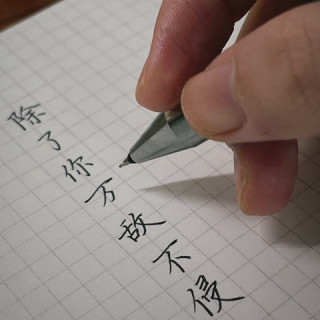 除了你万敌不侵